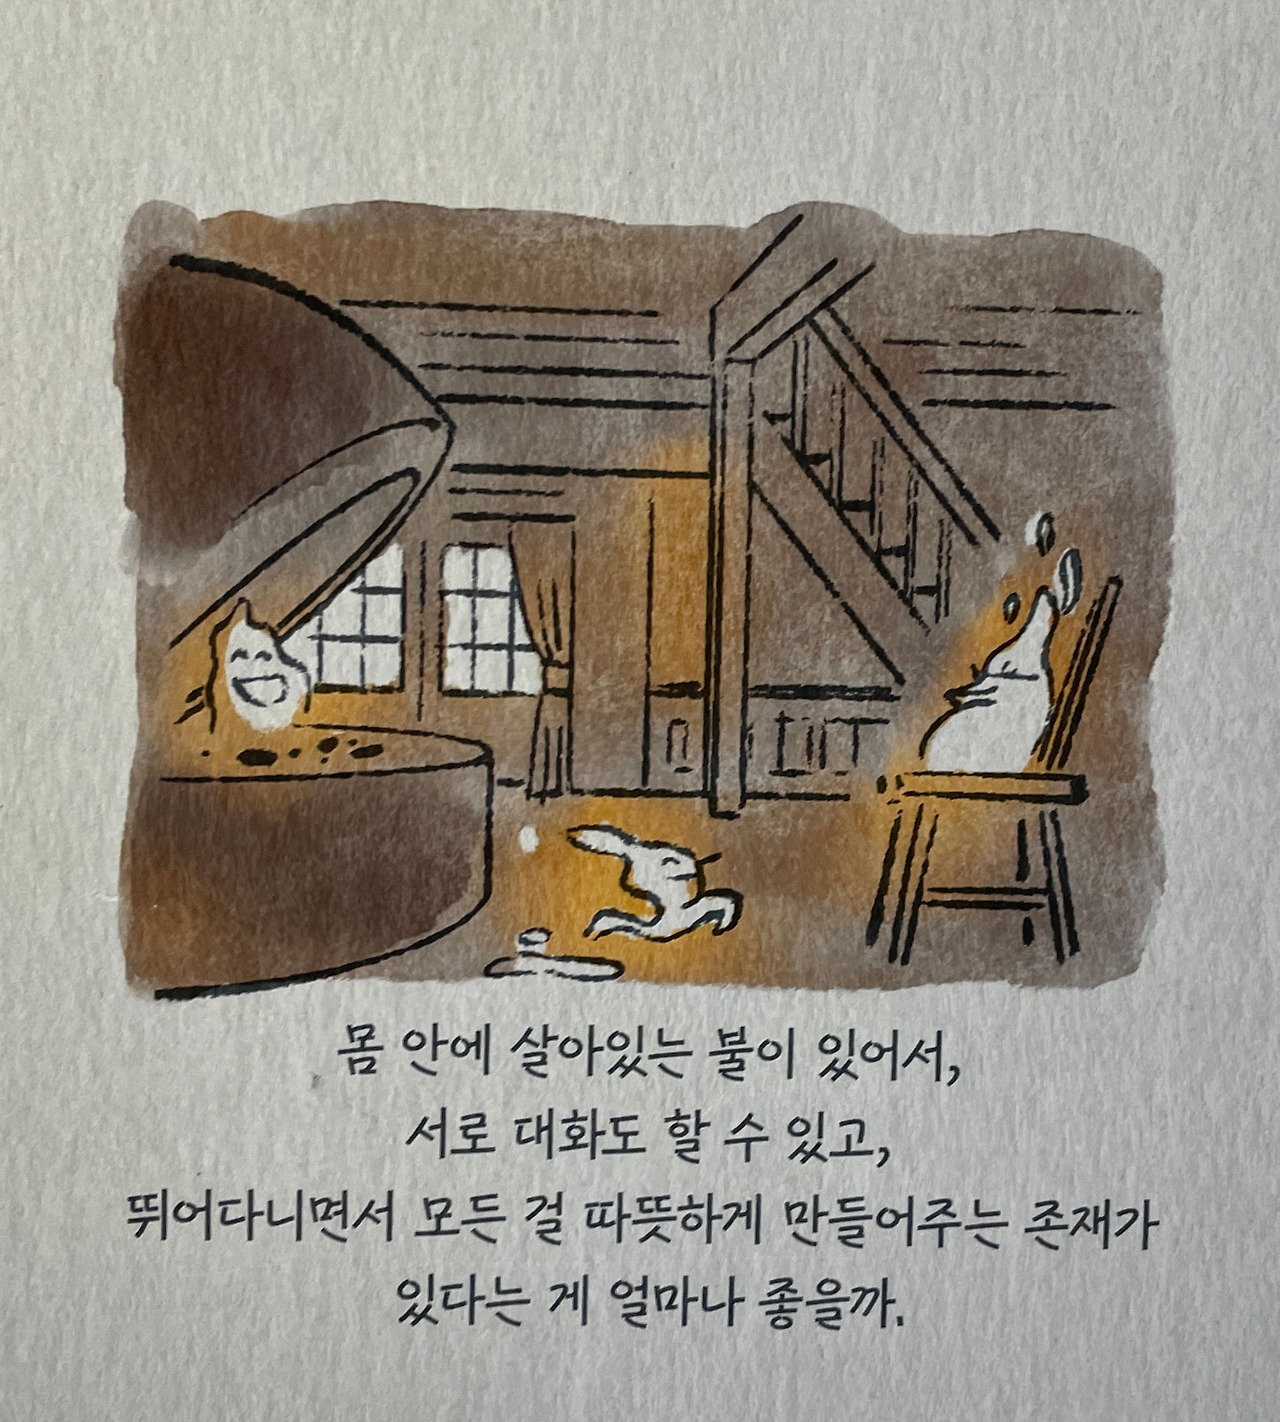 몸 안에 살아있는 불이 있어서,
서로 대화도 할 수 있고,
뛰어다니면서 모든 걸 따뜻하게 만들어주는 존재가
있다는 게 얼마나 좋을까.